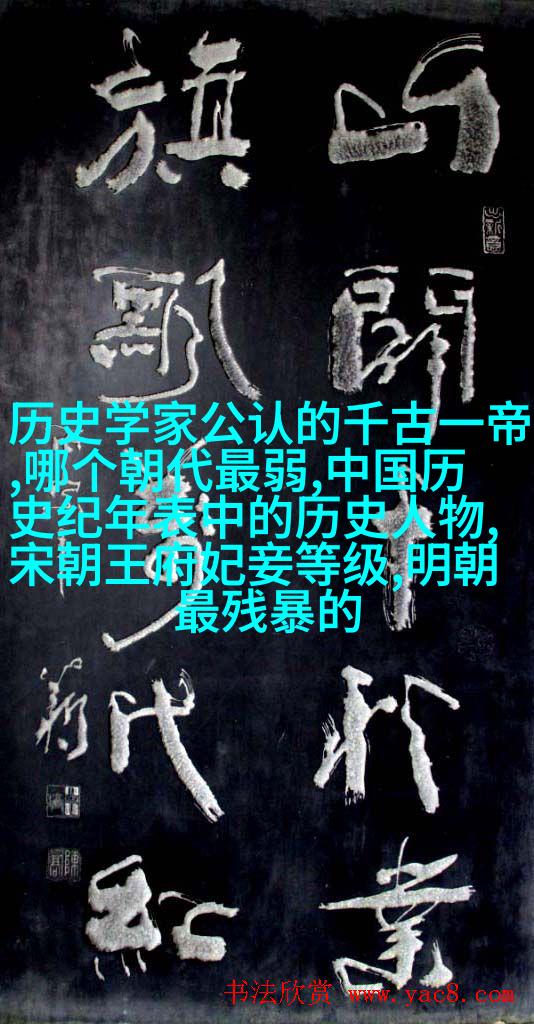 山開千秋業
旗飘萬代紅
历史学家公认的千古一帝
,哪个朝代最弱,中国历
史纪年表中的历史人物,
宋朝王府妃妾等级,明朝
最残暴的
书法欣赏 www.yac8.com